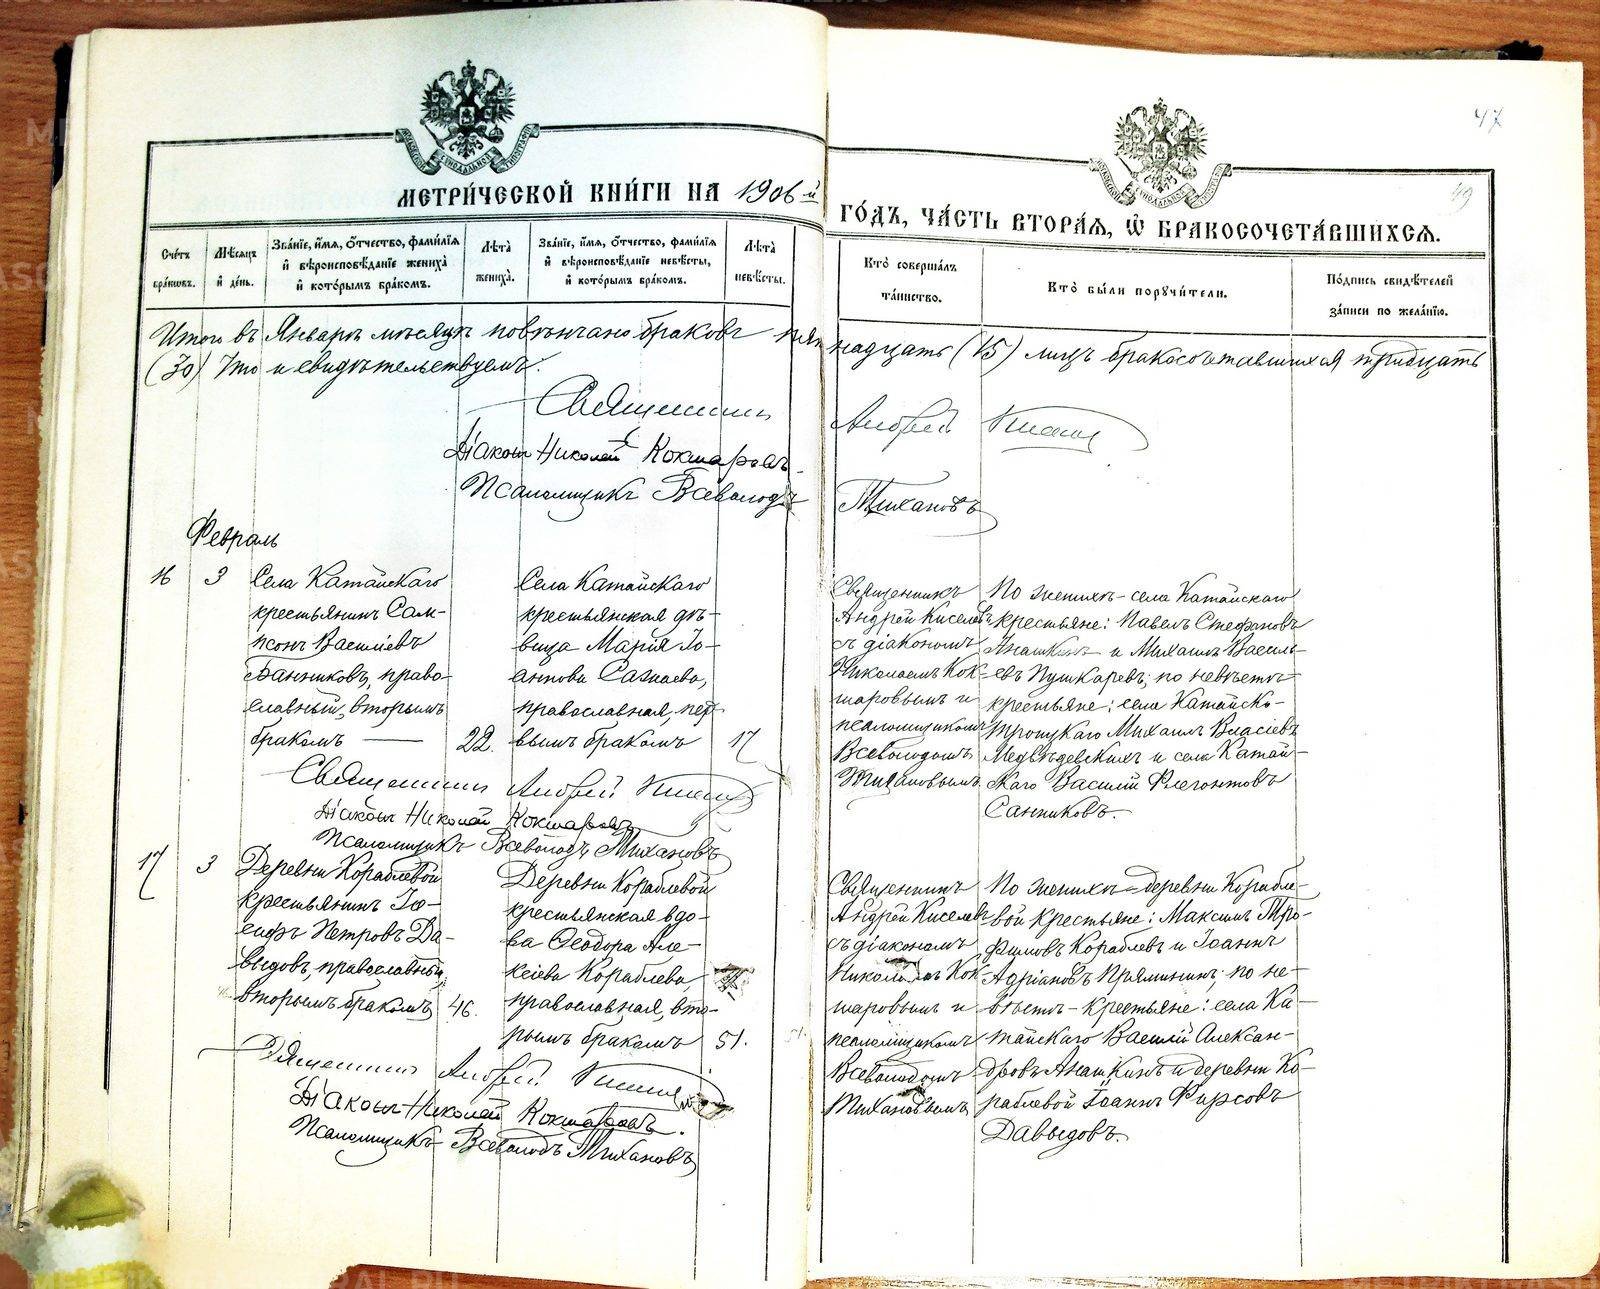 47
49
МЕТРИ́ЧЕСКОЙ КНИ́ГИ НА 1906-й
ГО́ДЪ, ЧА́СТЬ ВТОРА́Я, Ѡ БРАКОСОЧЕТА́ВШИХСЯ.
Сче́тъ бра́ковъ.
Мѣ́сяцъ и́ де́нь.
Зва́нїе, и́мя, о́тчество, фами́лїя и́ вѣроисповѣ́данїе жениха̀ и́ кото́рымъ бра́комъ.
Лѣ́та жениха̀.
Зва́нїе, и́мя, о́тчество, фами́лїя и́ вѣроисповѣ́данїе невѣ́сты, и́ кото́рымъ бра́комъ.
Лѣ́та невѣ́сты.
Кто̀ соверша́лъ та́инство.
Кто̀ бы́ли поручи́тели.
По́дпись свидѣ́телей за́писи по жела́нїю.
Итого въ Январѣ мѣсяцѣ повѣнчано браковъ пятнадцать (15) лицъ бракосочетавшихся тридцать
(30) Что и свидѣтельствуемъ:
Священникъ Андрей Киселевъ
Діаконъ Николай Кокшаровъ
Псаломщикъ Всеволодъ Тихановъ
Февраль
16
3
Села Катайскаго
крестьянинъ Сам-
псонъ Василіевъ
Банниковъ, право-
славный, вторымъ
бракомъ —
22.
Села Катайскаго
крестьянская дѣ-
вица Марія Іо-
аннова
православная, пер-
вымъ бракомъ
17
Священникъ
Андрей Киселевъ
съ діакономъ
Николаемъ Кок-
шаровымъ и
псаломщикомъ
Всеволодомъ
Тихановымъ
По женихѣ - села Катайскаго
крестьяне: Павелъ Стефановъ
Анашкинъ и Михаилъ Василь-
евъ Пушкаревъ; по невѣстѣ
крестьяне: села Катайско-
троицкаго Михаилъ Власіевъ
Медвѣдевскихъ и села Катай-
скаго Василій Флегонтовъ
Санниковъ.
Священникъ Андрей Киселевъ
Діаконъ Николай Кокшаровъ
Псаломщикъ Всеволодъ Тихановъ
17
3
Деревни Кораблевой
крестьянинъ Іо-
сифъ Петровъ Да-
выдовъ, православный,
вторымъ бракомъ
46.
Деревни Кораблевой
крестьянская вдо-
ва Ѳеодора Але-
ксіева Кораблева,
православная, вто-
рымъ бракомъ
51.
Священникъ
Андрей Киселевъ
съ діакономъ
Николаемъ Кок-
шаровымъ и
псаломщикомъ
Всеволодомъ
Тихановымъ
По женихѣ - деревни Корабле-
вой крестьяне: Максимъ Тро-
фимовъ Кораблевъ и Іоаннъ
Адріановъ Пряминынъ; по не-
вѣстѣ - крестьяне: села Ка-
тайскаго Василій Алексан-
дровъ Анашкинъ и деревни Ко-
раблевой Іоаннъ Фирсовъ
Давыдовъ.
Священникъ Андрей Киселевъ
Діаконъ Николай Кокшаровъ.
Псаломщикъ Всеволодъ Тихановъ